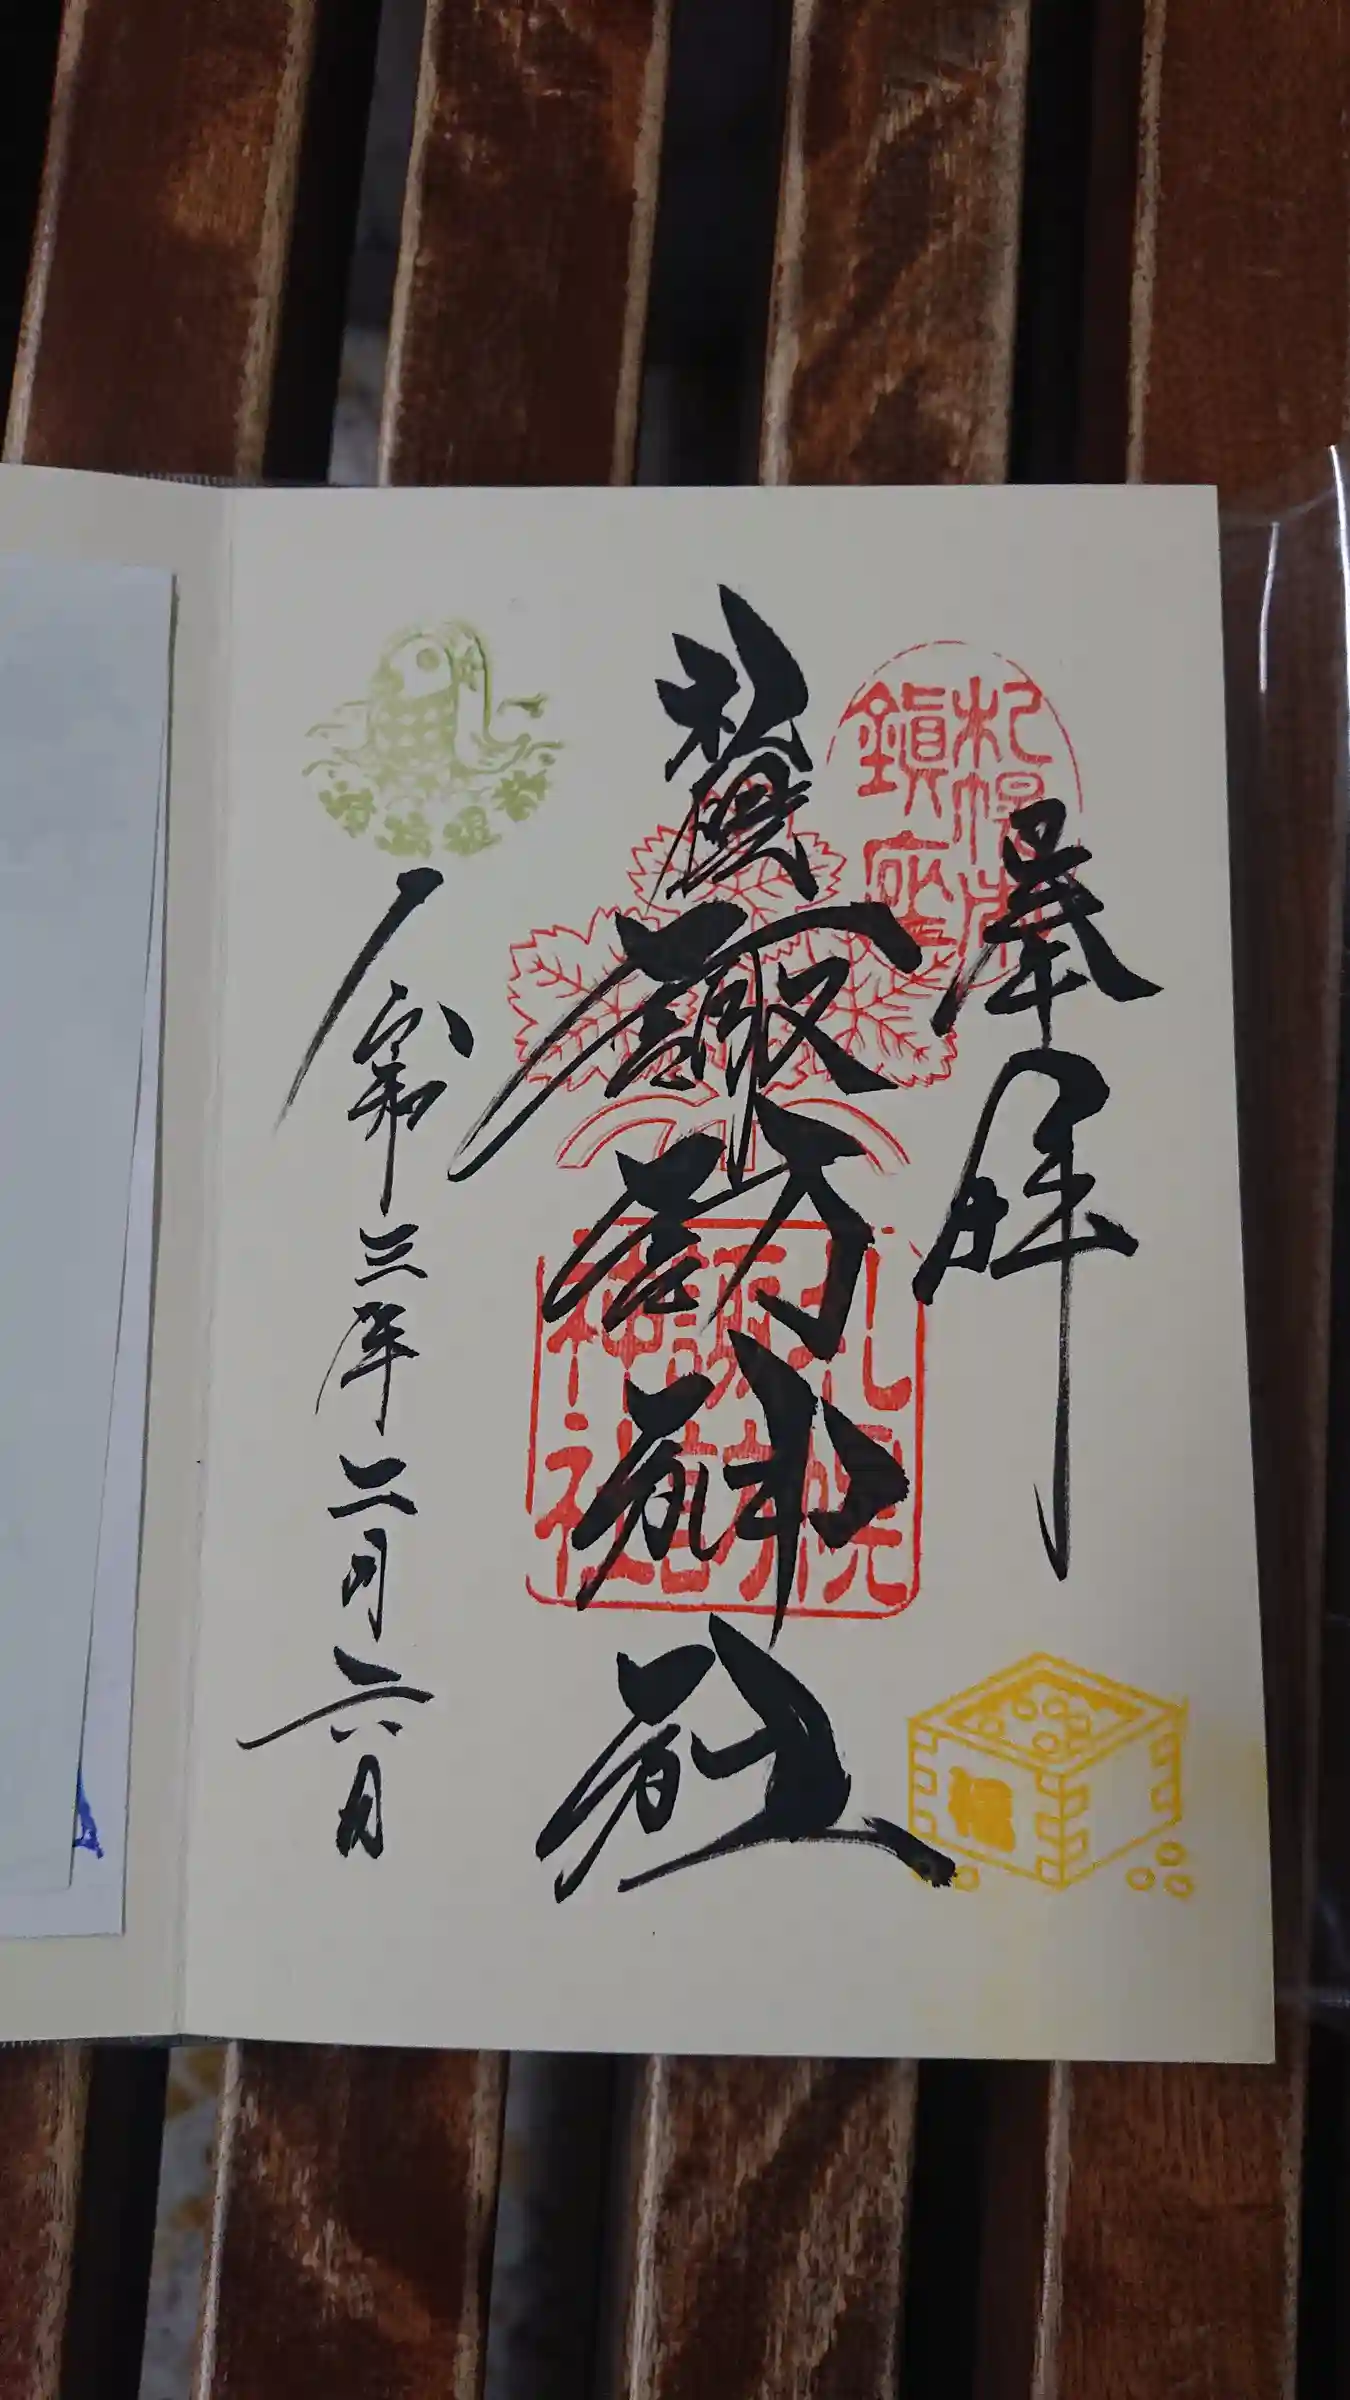 奉拝
札幌市
鎮座
札幌
諏訪神社
札幌
諏訪
神社
令和三年二月六日
福